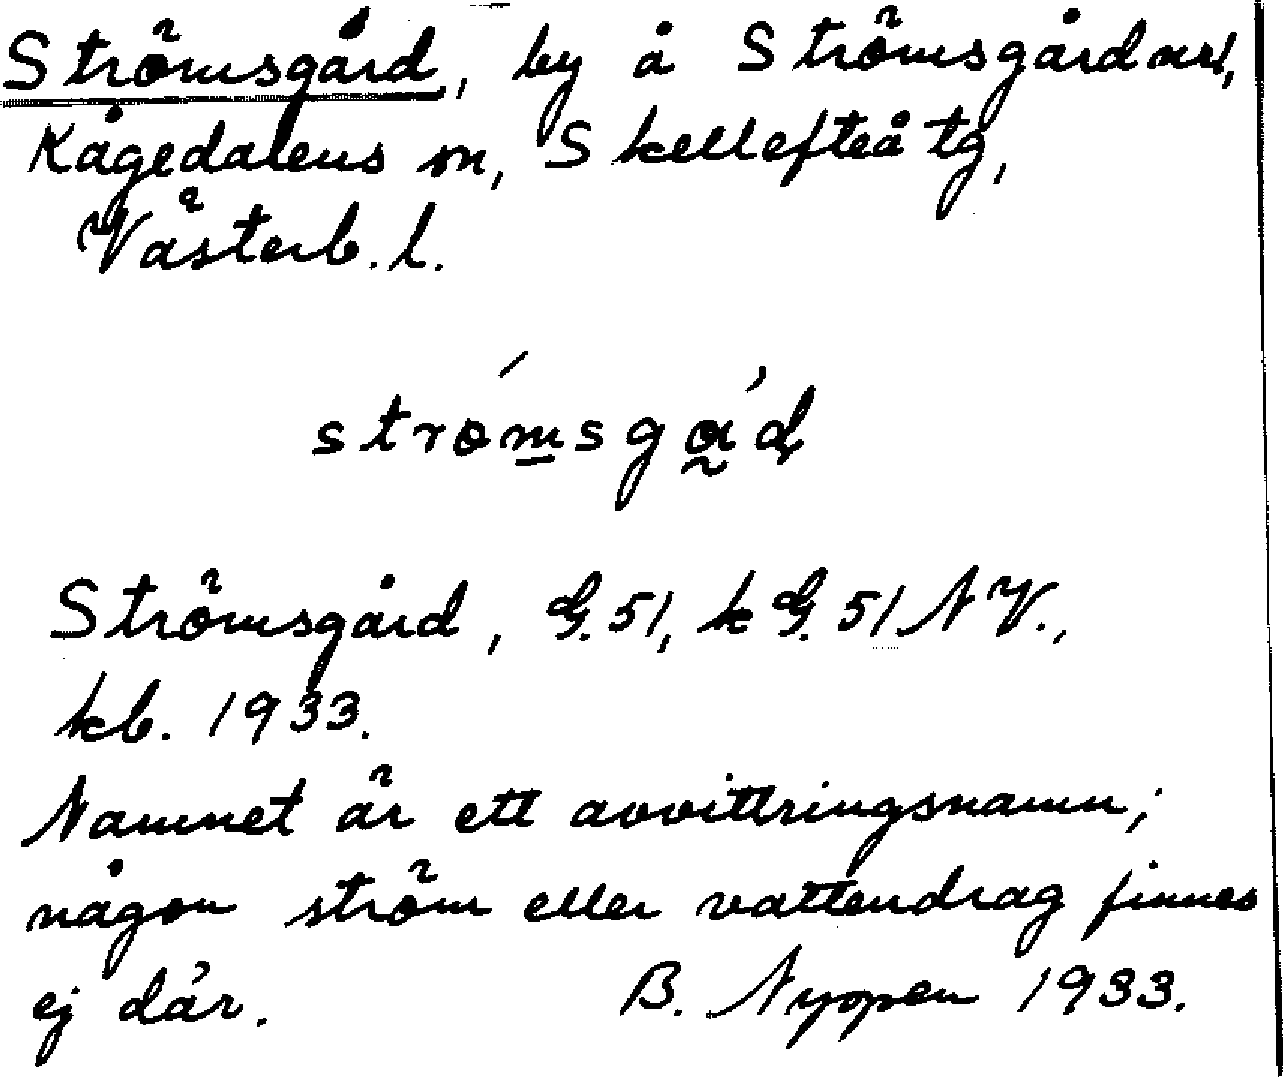 Strömsgård, by å Strömsgård nr 1,
Kågedalens sn, Skellefteå tg,
Västerb. l.
strömsgård
Strömsgård, G. 51, k G. 51 NV.,
kb. 1933.
Namnet är ett avvittringsnamn;
någon ström eller vattendrag finnes
ej där. B. Nyopen 1933.